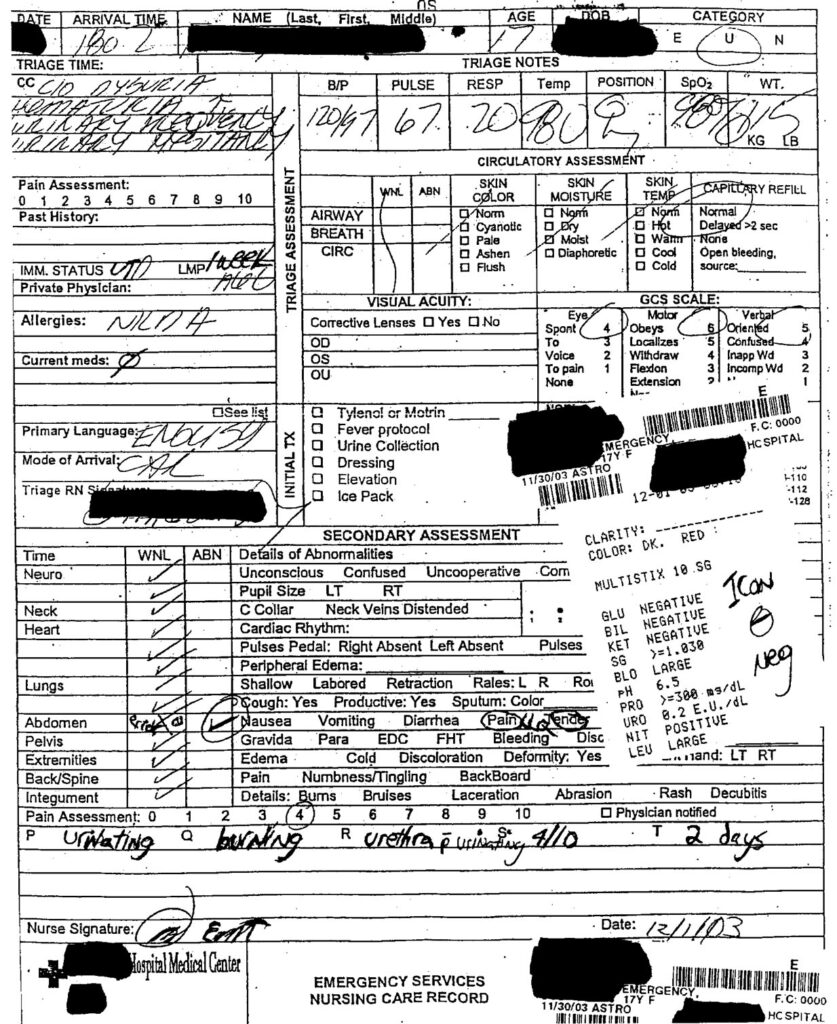 OS
DATE ARRIVAL TIME NAME (Last, First, Middle) AGE DOB CATEGORY
17 E U N
TRIAGE TIME: TRIAGE NOTES
CC C/O DYSURIA
HEMATURIA
URINARY FREQUENCY
URINARY HESITANCY
B/P PULSE RESP Temp POSITION SpO2 WT.
120/97 67 20 KG LB
CIRCULATORY ASSESSMENT
Pain Assessment:
0 1 2 3 4 5 6 7 8 9 10
Past History:
IMM. STATUS UTD LMP 1 WEEK AGO
Private Physician:
Allergies: NKDA
Current meds: Ø
See list
Primary Language: ENGLISH
Mode of Arrival: CAR
Triage RN Signature
TRIAGE ASSESSMENT
WNL ABN
AIRWAY
BREATH
CIRC
SKIN COLOR
Norm
Cyanotic
Pale
Ashen
Flush
SKIN MOISTURE
Norm
Dry
Moist
Diaphoretic
SKIN TEMP
Norm
Hot
Warm
Cool
Cold
CAPILLARY REFILL
Normal
Delayed >2 sec
None
Open bleeding,
source:
VISUAL ACUITY:
Corrective Lenses Yes No
OD
OS
OU
GCS SCALE:
Eye Motor Verbal
Spont 4 Obeys 6 Oriented 5
To 3 Localizes 5 Confused 4
Voice 2 Withdraw 4 Inapp Wd 3
To pain 1 Flexion 3 Incomp Wd 2
None Extension 2 1
INITIAL TX
Tylenol or Motrin
Fever protocol
Urine Collection
Dressing
Elevation
Ice Pack
E
F.C: 0000
EMERGENCY HOSPITAL
17Y F
11/30/03 ASTRO
-110
-112
-128
CLARITY:
COLOR: DK. RED
MULTISTIX 10 SG
GLU NEGATIVE
BIL NEGATIVE
KET NEGATIVE
SG >=1.030
BLO LARGE
PH 6.5
PRO >=300 mg/dL
URO 0.2 E.U./dL
NIT POSITIVE
LEU LARGE
ICON
⊖
Neg
SECONDARY ASSESSMENT
Time WNL ABN Details of Abnormalities
Neuro Unconscious Confused Uncooperative Com
Pupil Size LT RT
Neck C Collar Neck Veins Distended
Heart Cardiac Rhythm:
Pulses Pedal: Right Absent Left Absent Pulses
Peripheral Edema:
Lungs Shallow Labored Retraction Rales: L R
Cough: Yes Productive: Yes Sputum: Color
Abdomen error Nausea Vomiting Diarrhea Pain Tender
Pelvis Gravida Para EDC FHT Bleeding Disc
Extremities Edema Cold Discoloration Deformity: Yes hand: LT RT
Back/Spine Pain Numbness/Tingling BackBoard
Integument Details: Burns Bruises Laceration Abrasion Rash Decubitis
Pain Assessment: 0 1 2 3 4 5 6 7 8 9 10 Physician notified
P Urinating Q burning R urethra p̄ urinating S 4/10 T 2 days
Nurse Signature: EMT Date: 12/1/03
Hospital Medical Center
EMERGENCY SERVICES
NURSING CARE RECORD
E
EMERGENCY,
17Y F
F.C: 0000
11/30/03 ASTRO
HOSPITAL